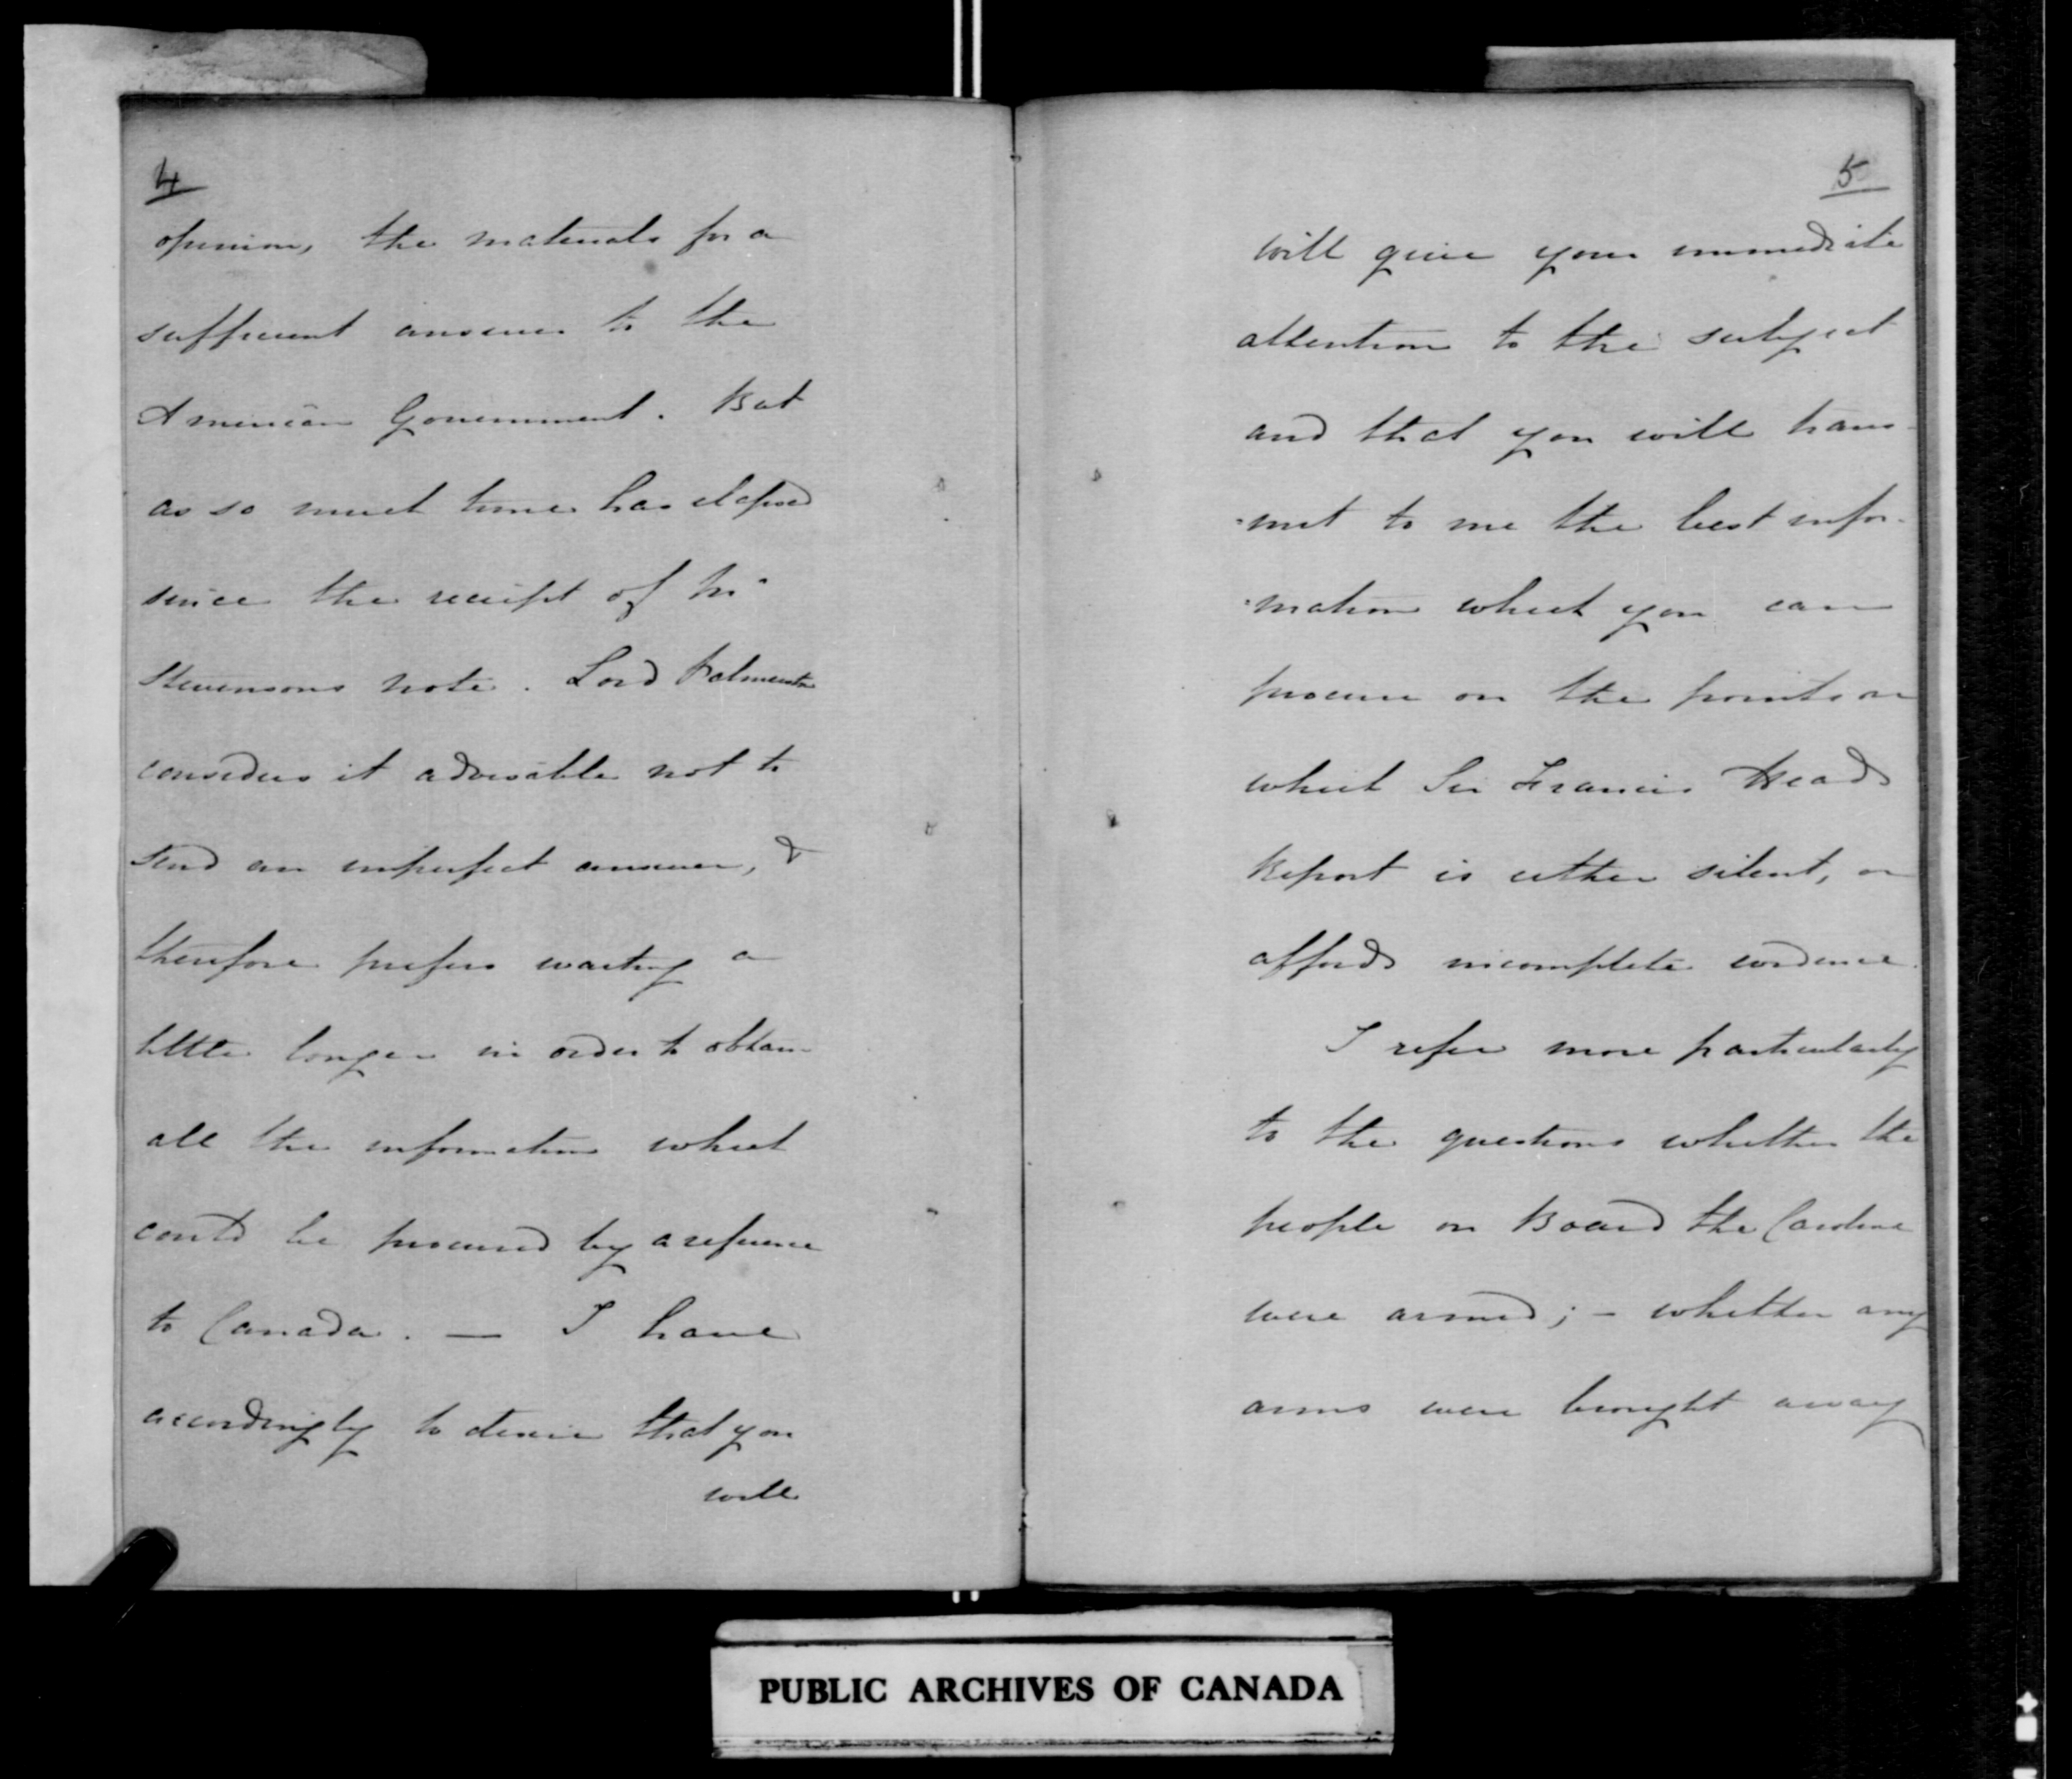 4
opinion, the materials for a
sufficient answer to the
American Government. But
as so much time has elapsed
since the receipt of Mr
Stevensons note. Lord Palmerston
considers it advisable not to
send an imperfect answer, &
therefore prefers waiting a
little longer in order to obtain
all the information which
could be procured by a reference
to Canada. — I have
accordingly to desire that you
will
5
will give your immediate
attention to the subject
and that you will trans-
-mit to me the best infor-
-mation which you can
procure on the points on
which Sir Francis Heads
Report is either silent, or
affords incomplete evidence.
I refer more particularly
to the questions whether the
people on Board the Caroline
were armed; – whether any
arms were brought away
PUBLIC ARCHIVES OF CANADA